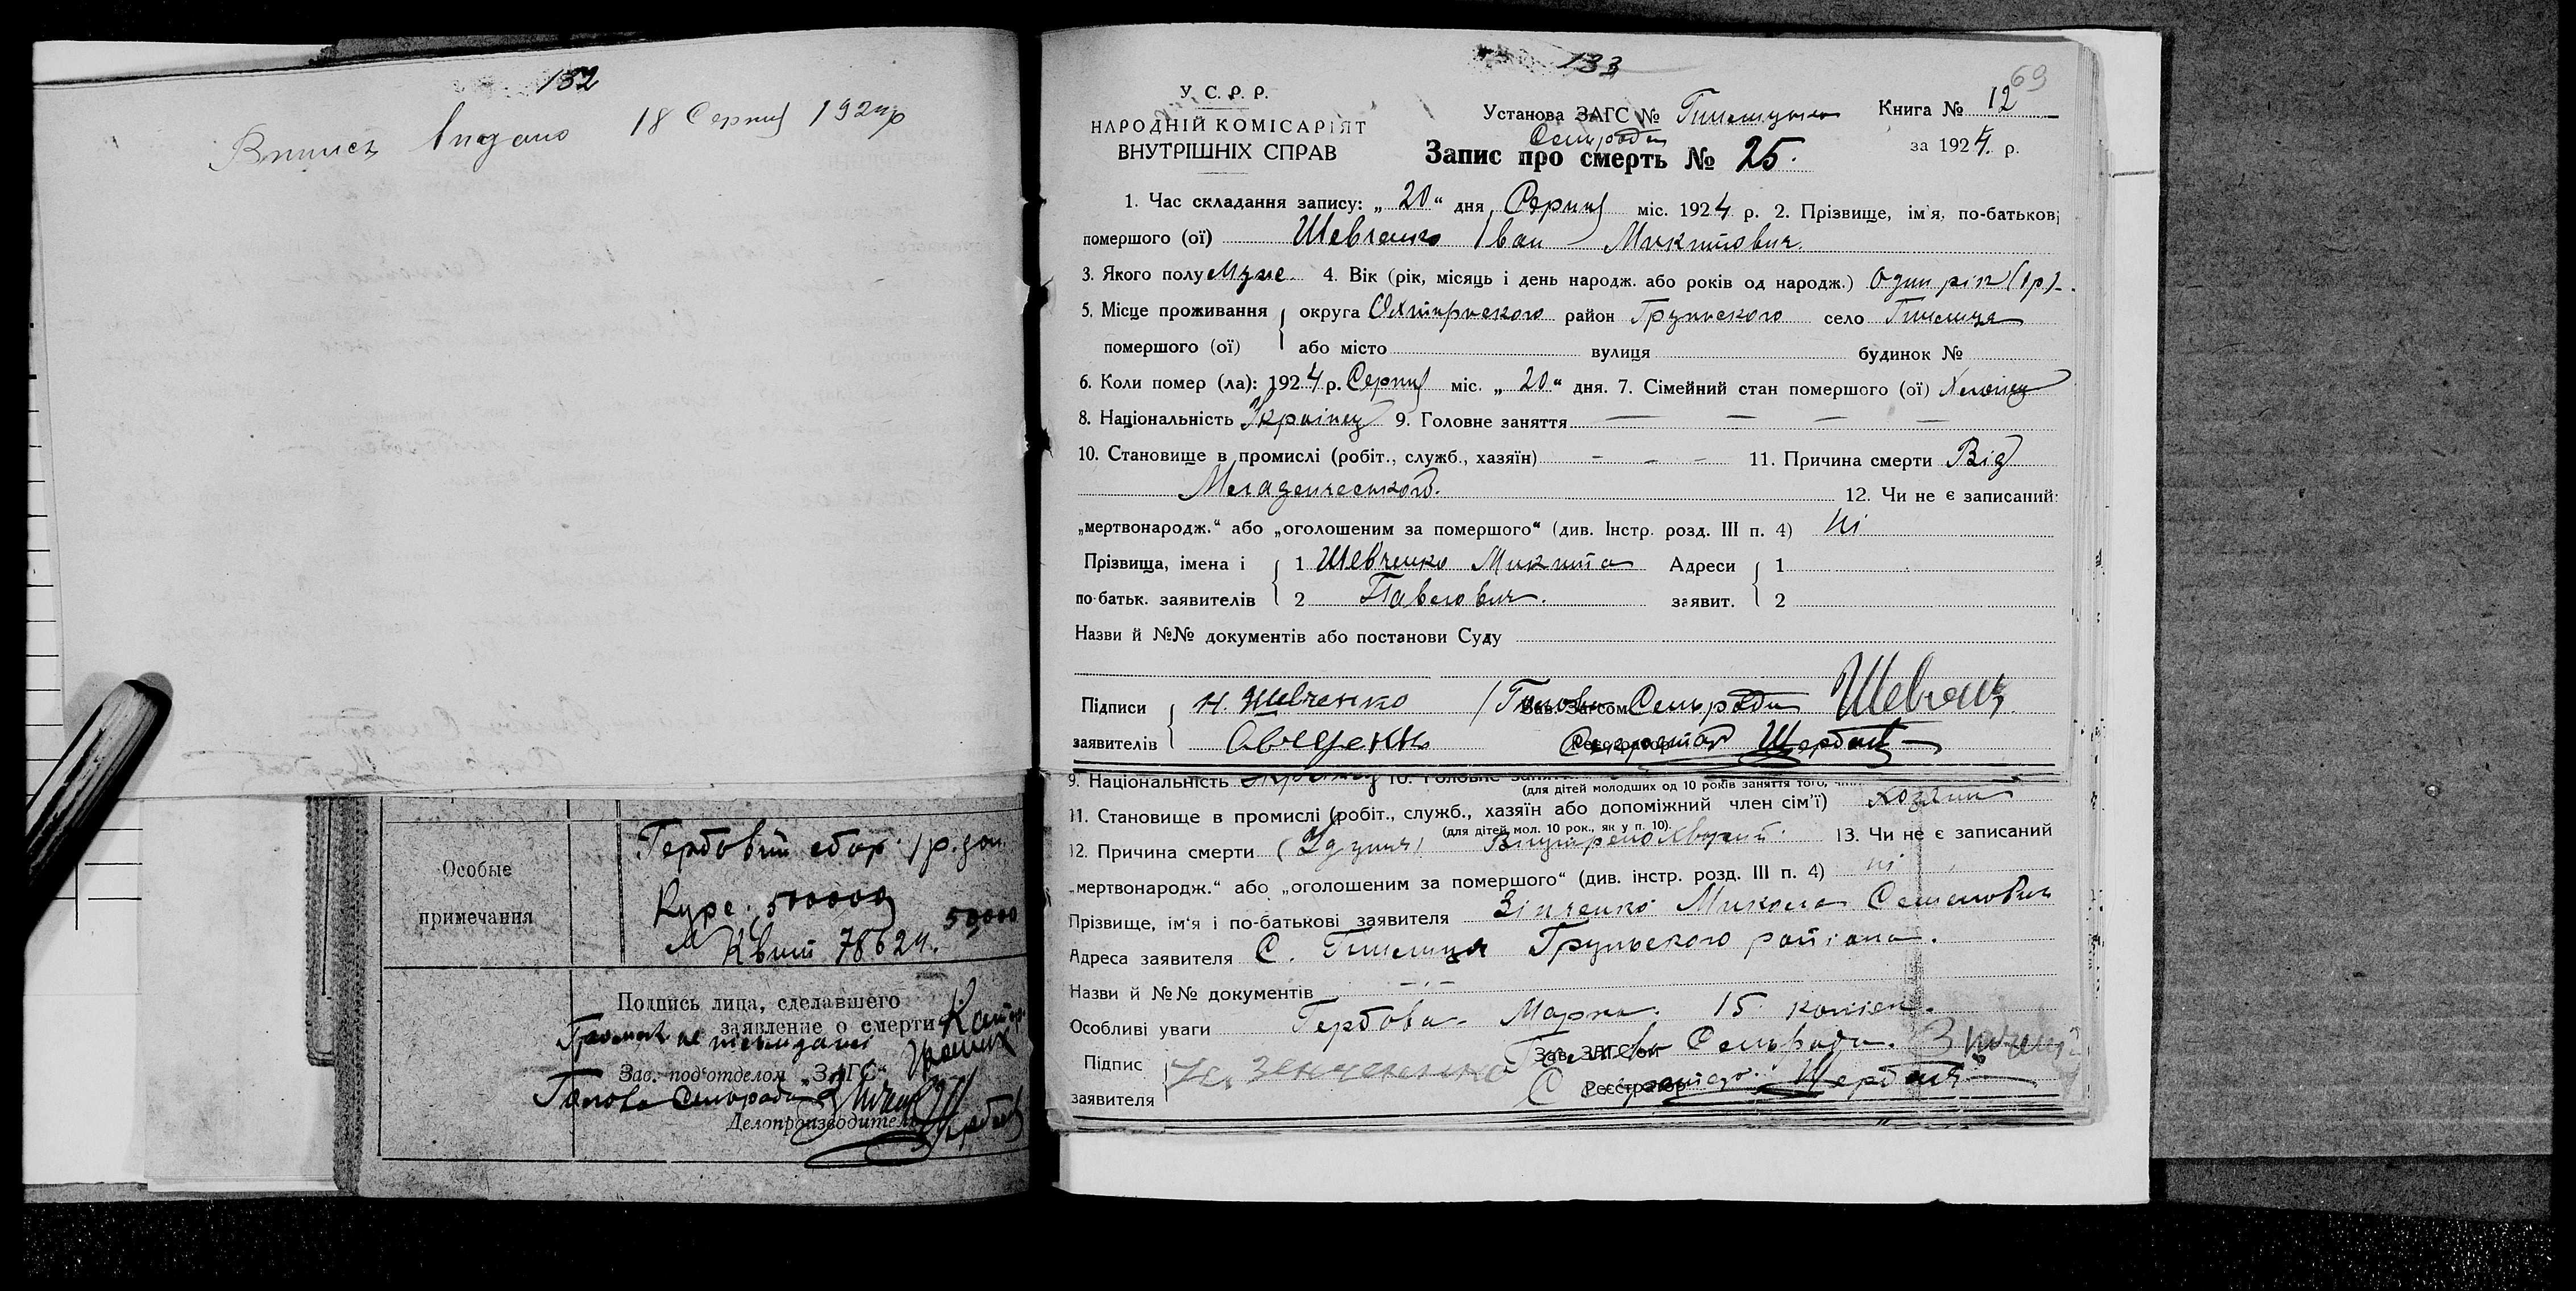 132
Випись видано 18 Серпня 1924 р
Особые
примечания
Гербовий збор 1 р. зол.
500000
50000
Квит 78624.
Подпись лица, сделавшего
заявление о смерти
Зав. подотделом „ЗАГС“
Голова Сельради
Делопроизводитель
133
69
У. С. Р. Р.
НАРОДНІЙ КОМІСАРІЯТ
ВНУТРІШНІХ СПРАВ
Установа ЗАГС №
Книга № 12
Сельради
за 1924 р.
Запис про смерть № 25.
1. Час складання запису: „20“ дня Серпня міс. 1924 р. 2. Прізвище, ім'я, по-батькові
помершого (ої) Шевченко Іван Микитович.
3. Якого полу Муже 4. Вік (рік, місяць і день народж. або років од народж.) Один рік (1р).
5. Місце проживання округа Охтирського район Грунського село
помершого (ої) або місто вулиця будинок №
6. Коли помер (ла): 1924 р. Серпня міс. „20“ дня. 7. Сімейний стан помершого (ої) Хлопец
8. Національність Українец 9. Головне заняття — — — —
10. Становище в промислі (робіт., служб., хазяїн) - - - 11. Причина смерти Від
Младенческого. 12. Чи не є записаний:
„мертвонародж.“ або „оголошеним за помершого“ (див. Інстр. розд. III п. 4) Ні
Прізвища, імена і 1 Шевченко Микита Адреси 1
по-батьк. заявителів 2 Павлович. заявит. 2
Назви й №№ документів або постанови Суду
Підписи Н. Шевченко Зав. Загсом Голова Сельради Шевченко
заявителів Реєстратор Секретар Щербак
9. Національність
(для дітей молодших од 10 років заняття того,
11. Становище в промислі (робіт., служб., хазяїн або допоміжний член сім'ї) хозяин
(для дітей мол. 10 рок., як у п. 10).
12. Причина смерти 13. Чи не є записаний
„мертвонародж.“ або „оголошеним за помершого“ (див. інстр. розд. III п. 4) ні
Прізвище, ім'я і по-батькові заявителя Зінченко Микола Семенович
Адреса заявителя С. Грунського району.
Назви й №№ документів - . -
Особливі уваги Гербова Марка 15 копієк.
Підпис Зав. ЗАГС'ом Голова Сельради.
заявителя Реєстратор Секретар Щербак